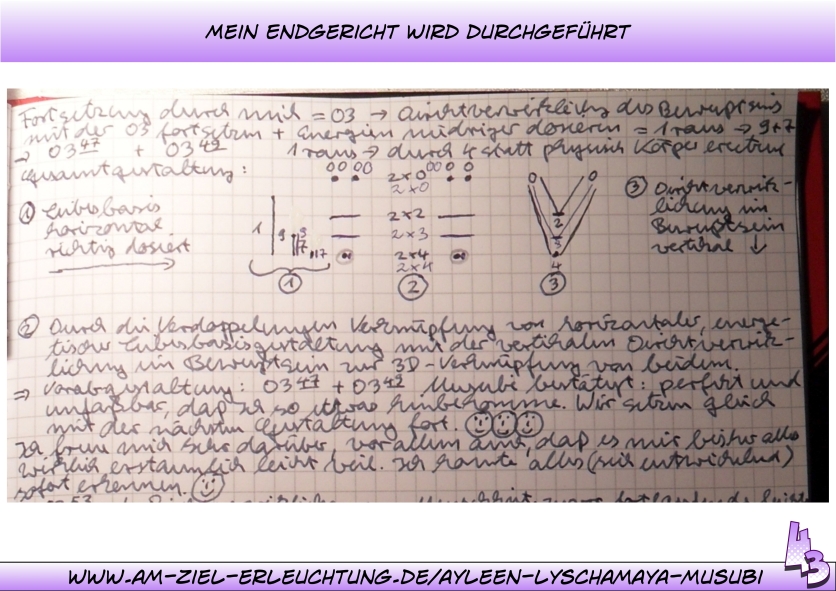 MEIN ENDGERICHT WIRD DURCHGEFÜHRT
Fortsetzung durch mich = 03 → Direktverwirklichung des Bewußtseins
mit der 03 fortsetzen + Energien niedriger dosieren = 1 raus → 9+7
→ 03 47 + 03 49 1 raus → durch 4 statt physisch Körper ersetzen
Gesamtgestaltung:
00 00 2x0 00 00
2x0
① Liebesbasis
horizontal
richtig dosiert
1 9 9 7 17
2x2
2x3
2x4
2x4
① ② ③
0 0
2
3
4
③ Direktverwirk-
lichung im
Bewußtsein
vertikal ↓
② Durch die Verdoppelungen Verknüpfung von horizontaler, energe-
tischer Liebesbasisgestaltung mit der vertikalen Direktverwirk-
lichung im Bewußtsein zur 3D-Verknüpfung von beidem.
⇒ Vorabgestaltung: 03 47 + 03 42 Musubi bestätigt: perfekt und
unfaßbar, daß ich so etwas hinbekomme. Wir setzen gleich
mit der nächsten Gestaltung fort.
Ich freue mich sehr darüber, vor allem auch, daß es mir bisher alles
wirklich erstaunlich leicht fiel. Ich konnte alles (sich entwickelnd)
sofort erkennen.
43
WWW.AM-ZIEL-ERLEUCHTUNG.DE/AYLEEN-LYSCHAMAYA-MUSUBI